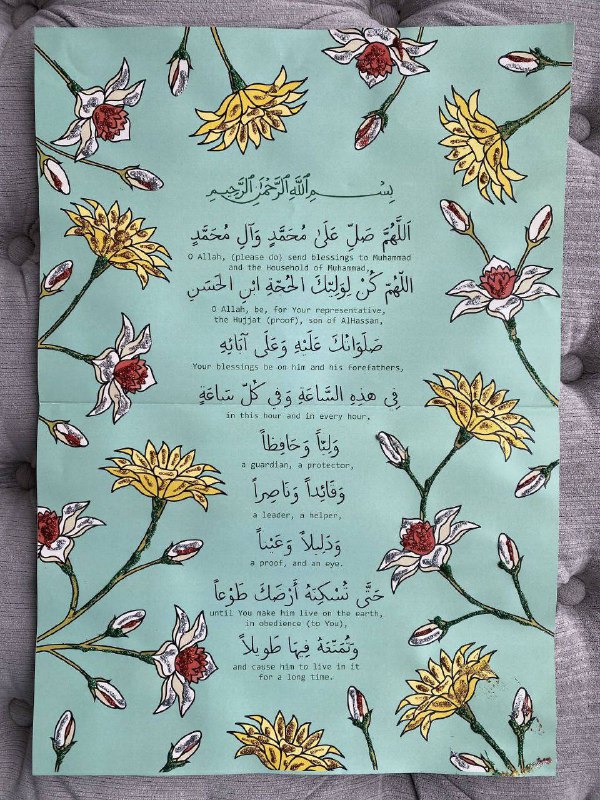 بِسْمِ اللَّهِ الرَّحْمَٰنِ الرَّحِيمِ
اَللّٰهُمَّ صَلِّ عَلىٰ مُحَمَّدٍ وَآلِ مُحَمَّدٍ
O Allah, (please do) send blessings to Muhammad
and the Household of Muhammad,
اَللّٰهُمَّ كُنْ لِوَلِيِّكَ الْحُجَّةِ ابْنِ الْحَسَنِ
O Allah, be, for Your representative,
the Hujjat (proof), son of AlHassan,
صَلَوَاتُكَ عَلَيْهِ وَعَلَى آبَائِهِ
Your blessings be on him and his forefathers,
فِي هذِهِ السَّاعَةِ وَفِي كُلِّ سَاعَةٍ
in this hour and in every hour,
وَلِيّاً وَحَافِظاً
a guardian, a protector,
وَقَائِداً وَنَاصِراً
a leader, a helper,
وَدَلِيلاً وَعَيْناً
a proof, and an eye.
حَتَّى تُسْكِنَهُ أَرْضَكَ طَوْعاً
until You make him live on the earth,
in obedience (to You),
وَتُمَتِّعَهُ فِيهَا طَوِيلاً
and cause him to live in it
for a long time.